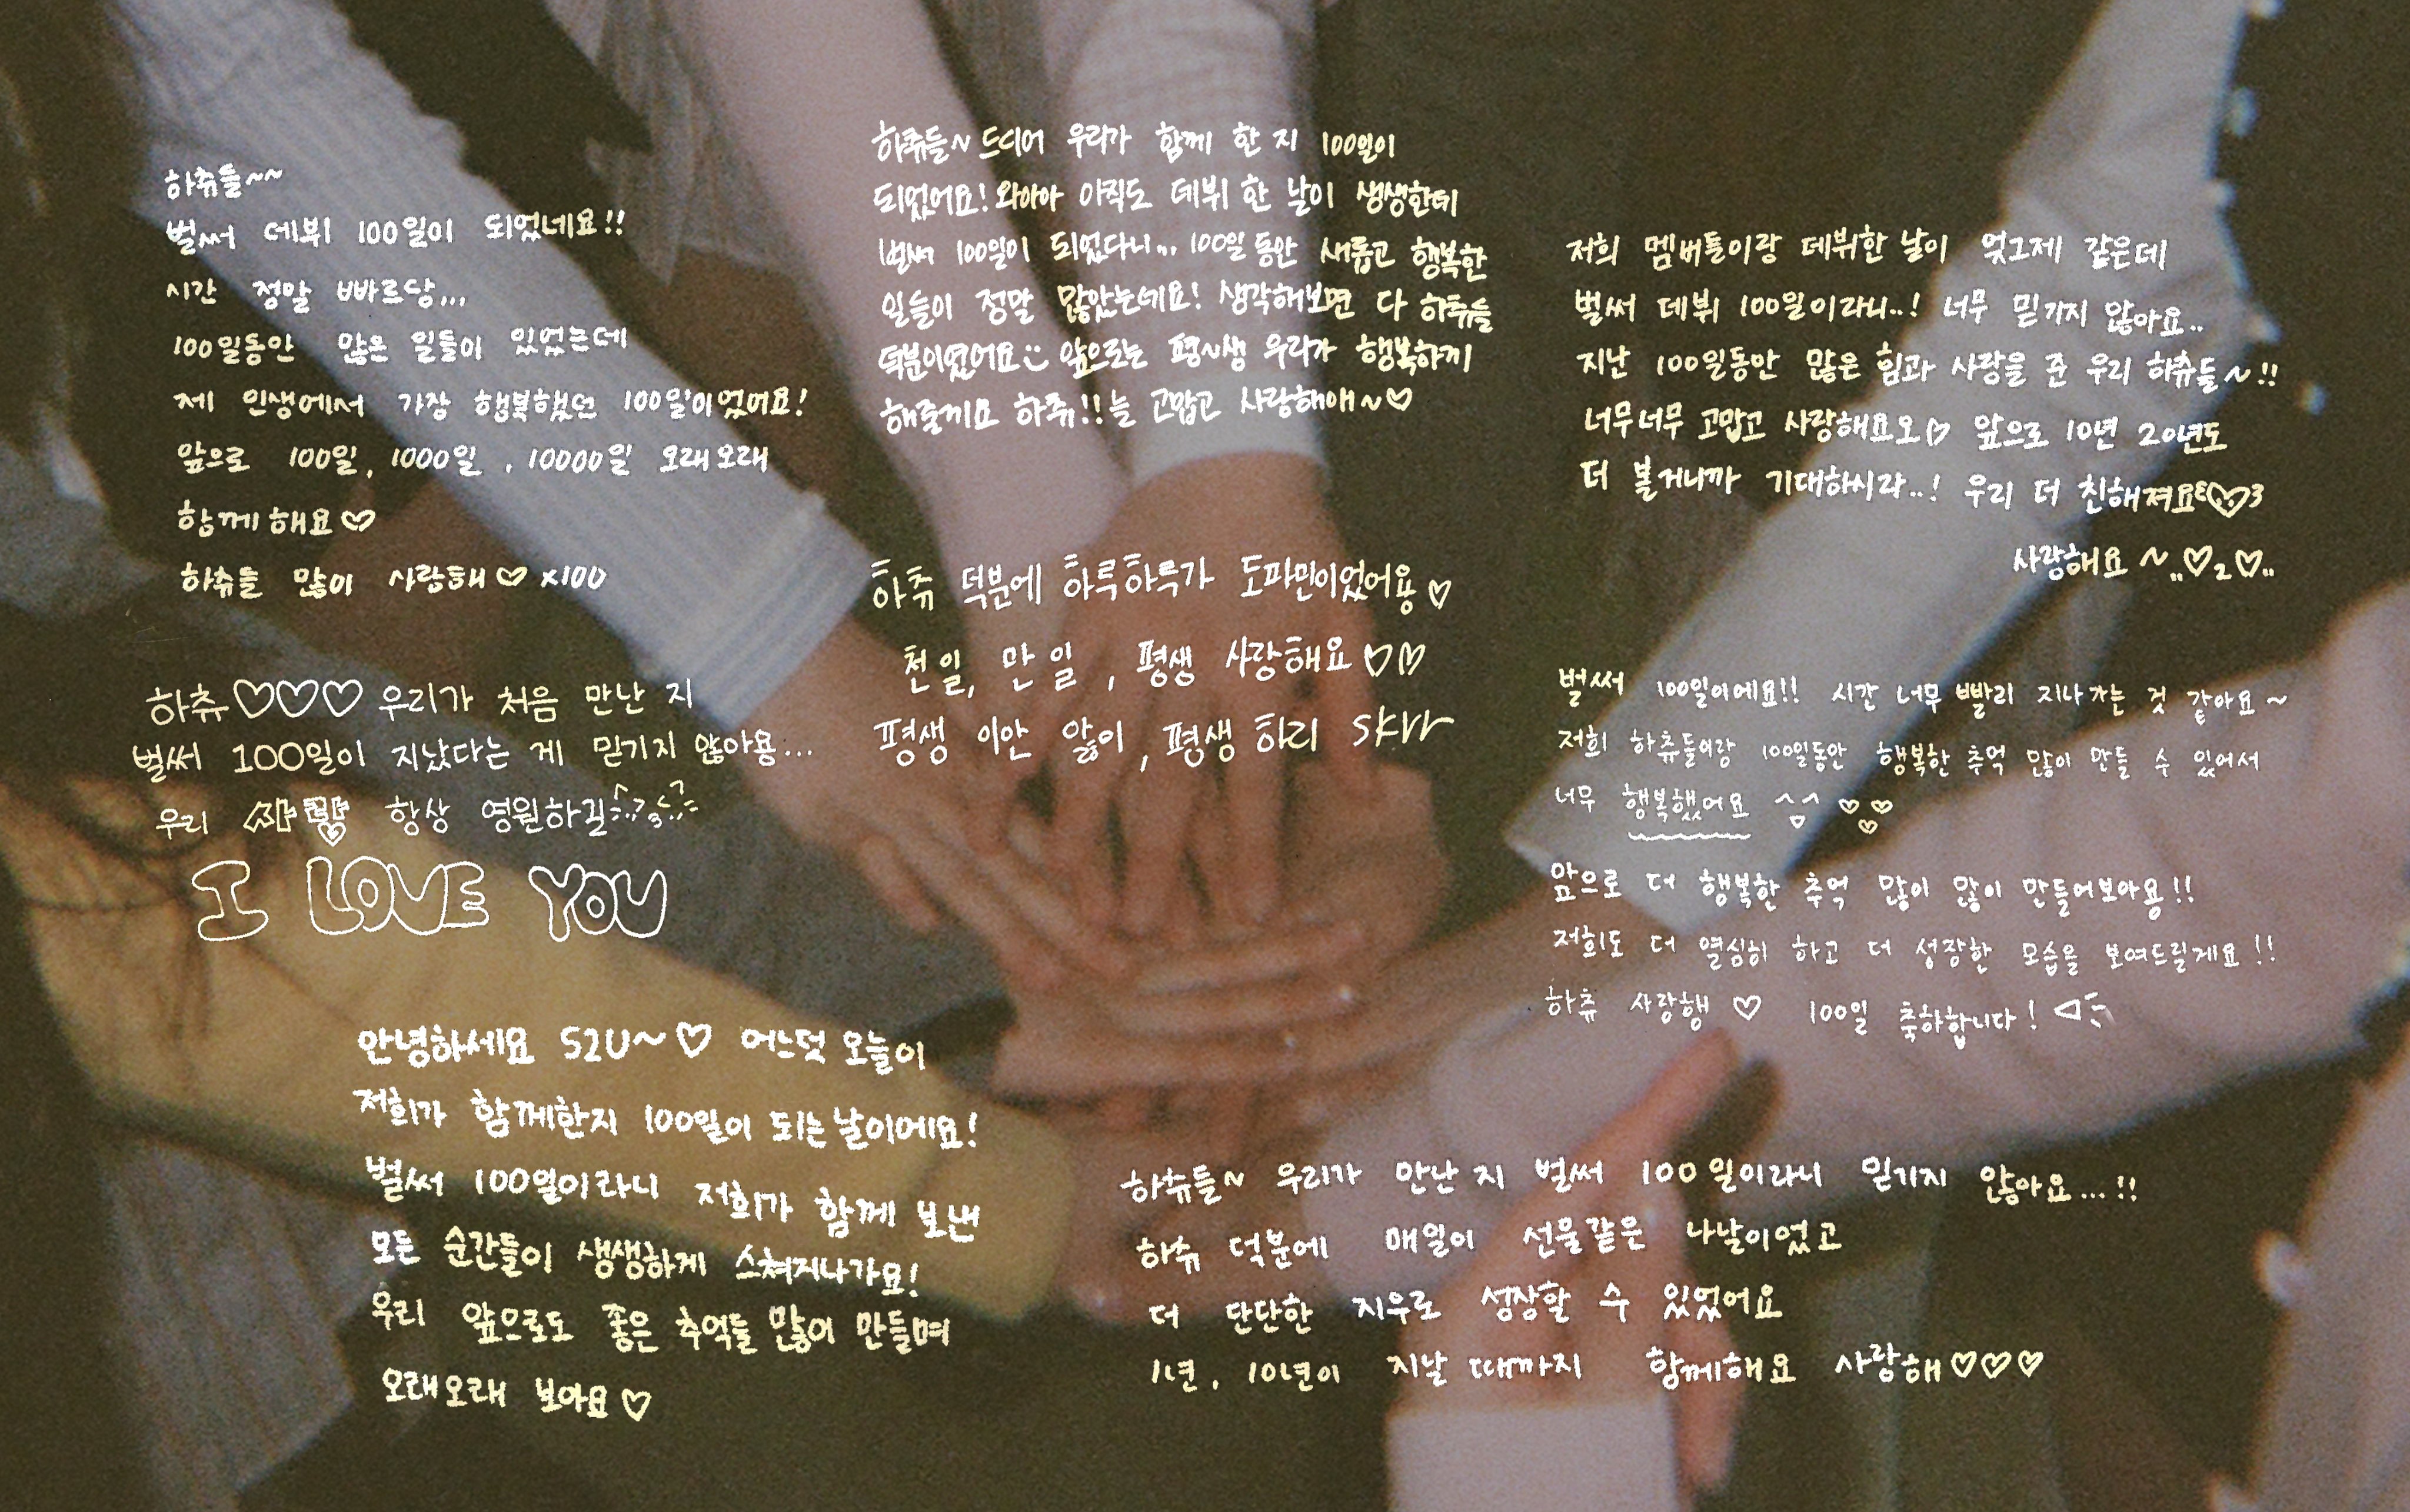 하츄들~~
벌써 데뷔 100일이 되었네요!!
시간 정말 빠르당...
100일동안 많은 일들이 있었는데
제 인생에서 가장 행복했던 100일이었어요!
앞으로 100일, 1000일, 10000일 오래오래
함께해요♡
하츄들 많이 사랑해♡ x100
하츄들~드디어 우리가 함께 한 지 100일이
되었어요! 와아아 아직도 데뷔 한 날이 생생한데
벌써 100일이 되었다니... 100일 동안 새롭고 행복한
일들이 정말 많았는데요! 생각해보면 다 하츄들
덕분이였어요 앞으로는 평~생 우리가 행복하게
해줄게요 하츄!! 늘 고맙고 사랑해애~♡
저희 멤버들이랑 데뷔한 날이 엊그제 같은데
벌써 데뷔 100일이라니..! 너무 믿기지 않아요..
지난 100일동안 많은 힘과 사랑을 준 우리 하츄들~!!
너무너무 고맙고 사랑해요오♡ 앞으로 10년 20년도
더 볼거니까 기대하시라..! 우리 더 친해져요ε♡3
사랑해요 ~..♡2♡..
하츄♡♡♡ 우리가 처음 만난 지
벌써 100일이 지났다는 게 믿기지 않아용...
우리 사랑 항상 영원하길
I LOVE YOU
하츄 덕분에 하루하루가 도파민이었어용♡
천일, 만일, 평생 사랑해요♡♡
평생 이안 앓이, 평생 하리 skrr
벌써 100일이에요!! 시간 너무 빨리 지나가는 것 같아요~
저희 하츄들이랑 100일동안 행복한 추억 많이 만들 수 있어서
너무 행복했어요 ^▽^ ♡♡♡
앞으로 더 행복한 추억 많이 많이 만들어보아용!!
저희도 더 열심히 하고 더 성장한 모습을 보여드릴게요!!
하츄 사랑행♡ 100일 축하합니다!
안녕하세요 S2U~♡ 어느덧 오늘이
저희가 함께한지 100일이 되는날이에요!
벌써 100일이라니 저희가 함께 보낸
모든 순간들이 생생하게 스쳐지나가요!
우리 앞으로도 좋은 추억들 많이 만들며
오래오래 보아요♡
하츄들~ 우리가 만난 지 벌써 100일이라니 믿기지 않아요...!!
하츄 덕분에 매일이 선물같은 나날이었고
더 단단한 지우로 성장할 수 있었어요
1년, 10년이 지날 때까지 함께해요 사랑해♡♡♡